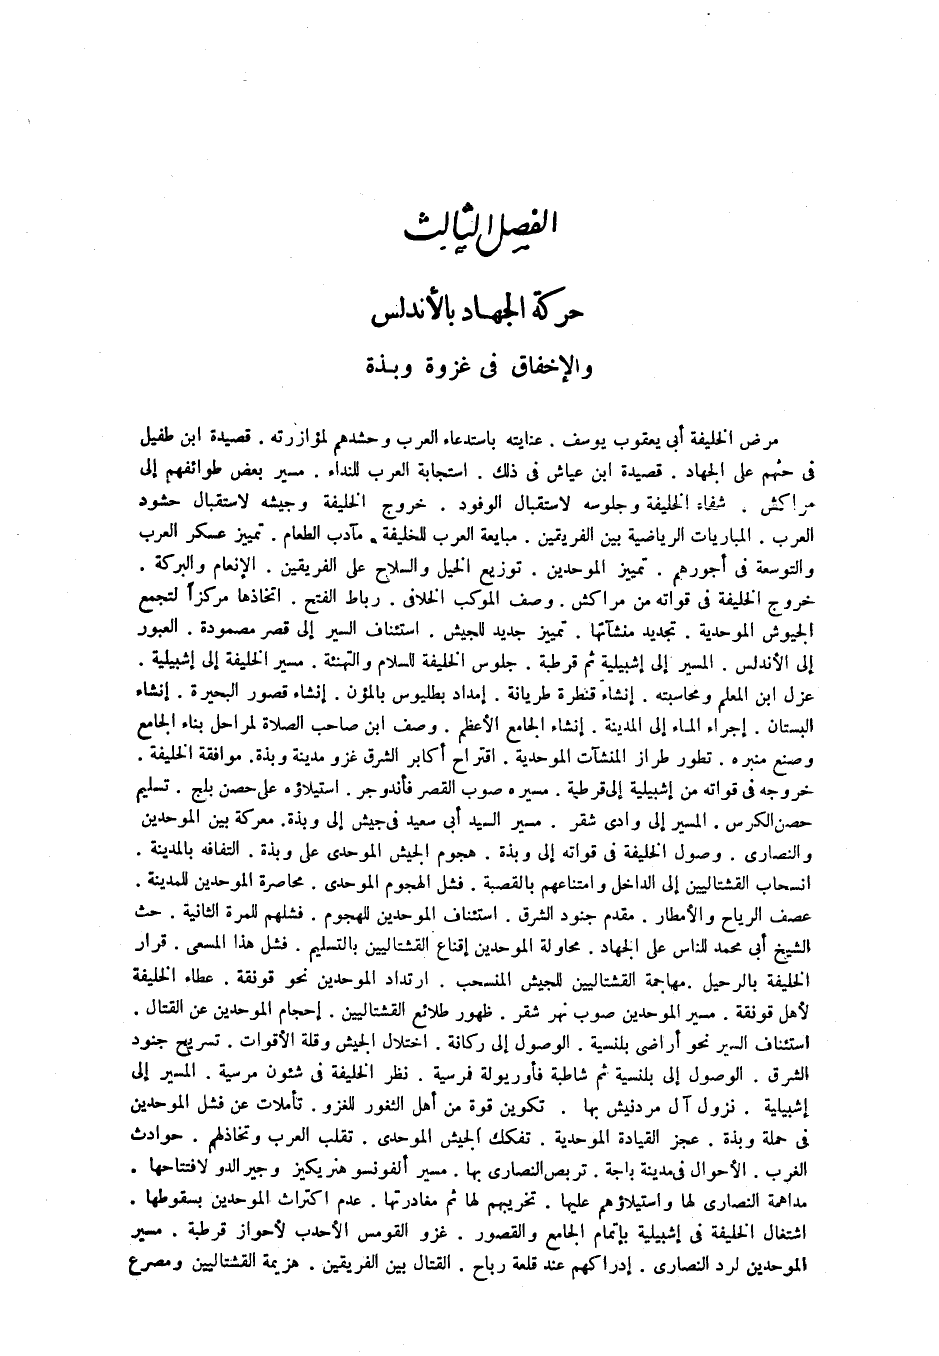 الفصل الثالث
حركة الجهاد بالأندلس
والإخفاق فى غزوة وبذة
مرض الخليفة أبي يعقوب يوسف . عنايته باستدعاء العرب وحشدهم لمؤازرته . قصيدة ابن طفيل
فى حثهم على الجهاد . قصيدة ابن عياش فى ذلك . استجابة العرب للنداء . مسير بعض طوائفهم إلى
مراكش . شفاء الخليفة وجلوسه لاستقبال الوفود . خروج الخليفة وجيشه لاستقبال حشود
العرب . المباريات الرياضية بين الفريقين . مبايعة العرب للخليفة . مآدب الطعام . تمييز عسكر العرب
والتوسعة فى أجورهم . تمييز الموحدين . توزيع الخيل والسلاح على الفريقين . الإنعام والبركة .
خروج الخليفة فى قواته من مراكش . وصف الموكب الخلافى . رباط الفتح . اتخاذها مركزاً لتجمع
الجيوش الموحدية . تجديد منشآتها . تمييز جديد للجيش . استئناف السير إلى قصر مصمودة . العبور
إلى الأندلس . المسير إلى إشبيلية ثم قرطبة . جلوس الخليفة للسلام والتهنئة . مسير الخليفة إلى إشبيلية .
عزل ابن المعلم ومحاسبته . إنشاء قنطرة طريانة . إمداد بطليوس بالمؤن . إنشاء قصور البحيرة . إنشاء
البستان . إجراء الماء إلى المدينة . إنشاء الجامع الأعظم . وصف ابن صاحب الصلاة لمراحل بناء الجامع
وصنع منبره . تطور طراز المنشآت الموحدية . اقتراح أكابر الشرق غزو مدينة وبذة. موافقة الخليفة .
خروجه فى قواته من إشبيلية إلى قرطبة . مسيره صوب القصر فأندوجر . استيلاؤه على حصن بلج . تسليم
حصن الكرس . المسير إلى وادى شقر . مسير السيد أبى سعيد فى جيش إلى وبذة. معركة بين الموحدين
والنصارى . وصول الخليفة فى قواته إلى وبذة . هجوم الجيش الموحدى على وبذة . التفافه بالمدينة .
انسحاب القشتاليين إلى الداخل وامتناعهم بالقصبة . فشل الهجوم الموحدى . محاصرة الموحدين للمدينة .
عصف الرياح والأمطار . مقدم جنود الشرق . استئناف الموحدين للهجوم . فشلهم للمرة الثانية . حث
الشيخ أبى محمد للناس على الجهاد . محاولة الموحدين إقناع القشتاليين بالتسليم . فشل هذا المسعى . قرار
الخليفة بالرحيل . مهاجمة القشتاليين للجيش المنسحب . ارتداد الموحدين نحو قونقة . عطاء الخليفة
لأهل قونقة . مسير الموحدين صوب نهر شقر . ظهور طلائع القشتاليين . إحجام الموحدين عن القتال .
استئناف السير نحو أراضى بلنسية . الوصول إلى ركانة . اختلال الجيش وقلة الأقوات . تسريح جنود
الشرق . الوصول إلى بلنسية ثم شاطبة فأوريولة فرسية . نظر الخليفة فى شئون مرسية . المسير إلى
إشبيلية . نزول آل مردنيش بها . تكوين قوة من أهل الثغور للغزو . تأملات عن فشل الموحدين
فى حملة وبذة . عجز القيادة الموحدية . تفكك الجيش الموحدى . تقلب العرب وتخاذلهم . حوادث
الغرب . الأحوال فى مدينة باجة . تربص النصارى بها . مسير ألفونسو هنريكيز وجيرالدو لافتتاحها .
مداهمة النصارى لها واستيلاؤهم عليها . تخريبهم لها ثم مغادرتها . عدم اكتراث الموحدين بسقوطها .
اشتغال الخليفة فى إشبيلية بإتمام الجامع والقصور . غزو القومس الأحدب لأحواز قرطبة . مسير
الموحدين لرد النصارى . إدراكهم عند قلعة رباح . القتال بين الفريقين . هزيمة القشتاليين ومصرع